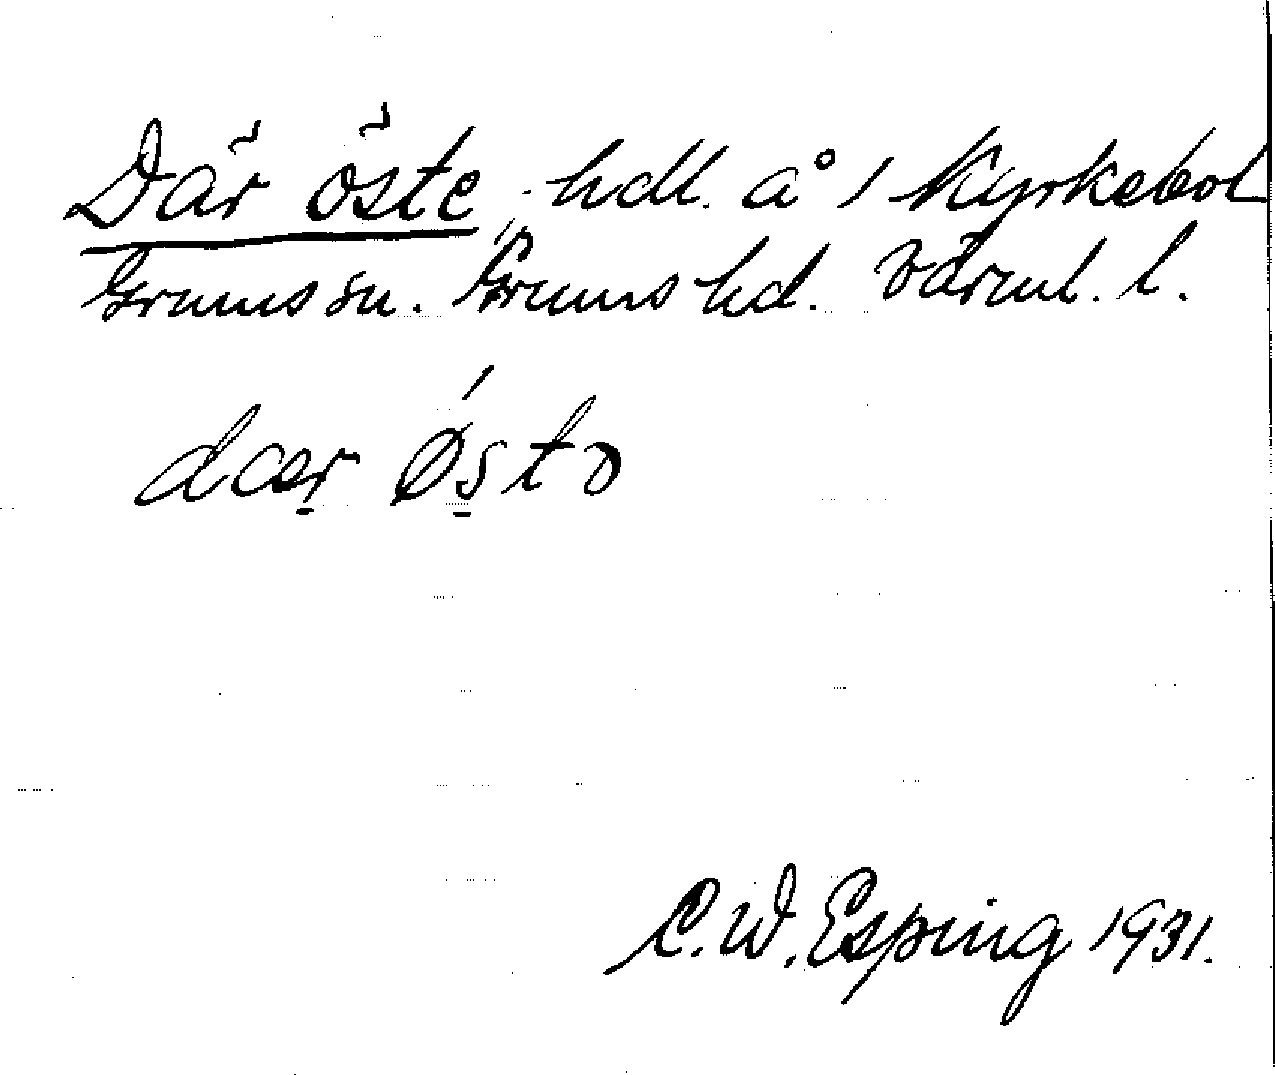 Där öste, hdl. å 1 Kyrkebol
Grums sn. Grums hd. Värml. l.
dær østo
C. W. Esping 1931.